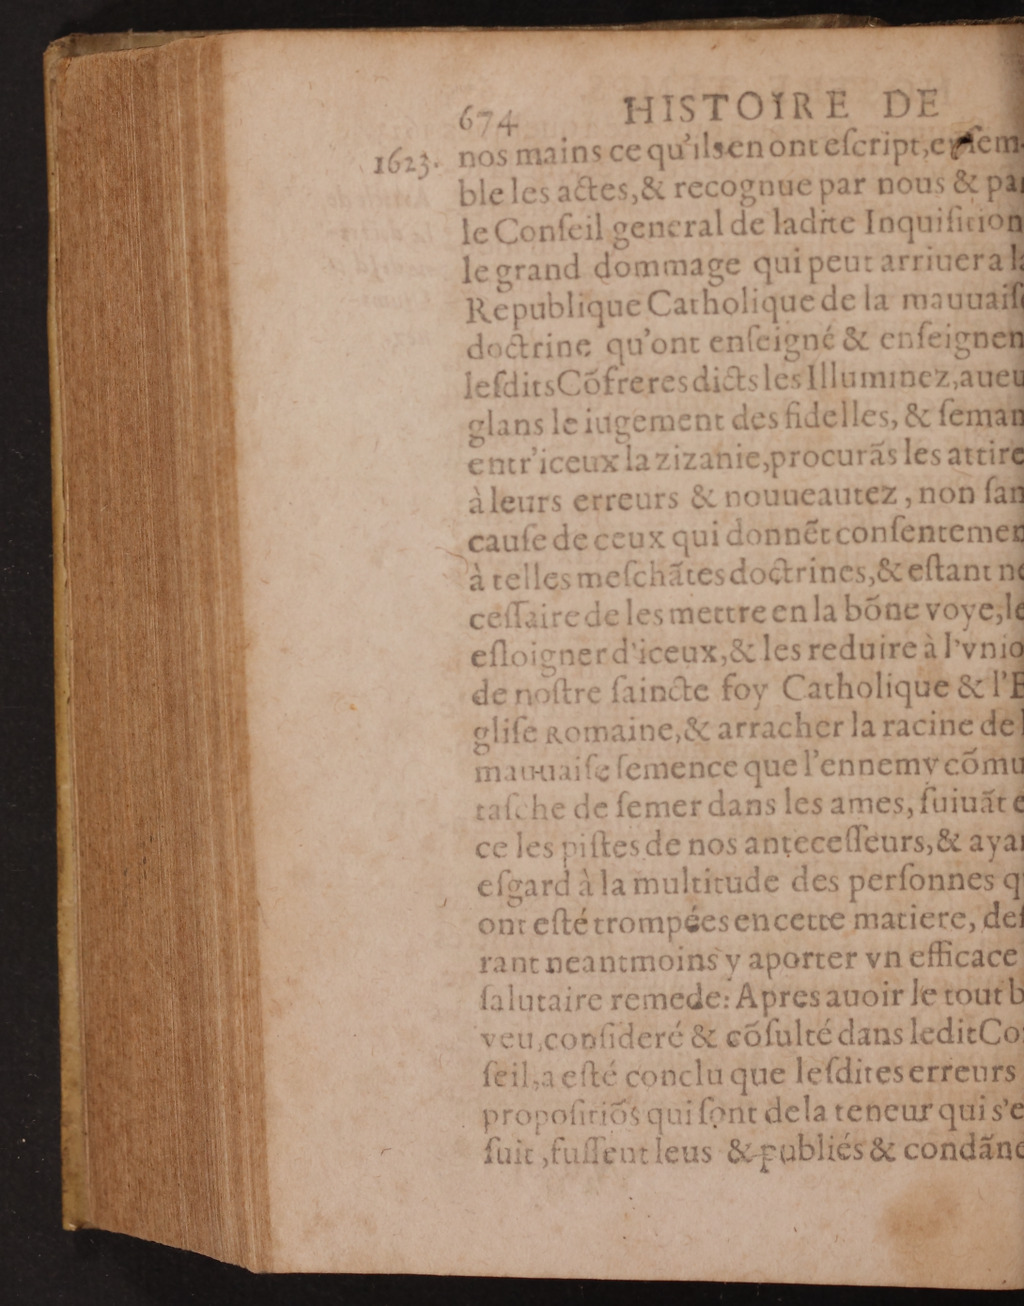 674 HISTOIRE DE
1623. nos mains ce qu'ils en ont eſcript, enſem-
ble les actes, & recognue par nous & par
le Conſeil general de ladite Inquiſition
le grand dommage qui peut arriuer a la
Republique Catholique de la mauuaiſe
doctrine qu'ont enſeigné & enſeignen
leſdits Cõfreres dicts les Illuminez, aueu
glans le iugement des fidelles, & ſeman
entr'iceux la zizanie, procurãs les attire
à leurs erreurs & nouueautez, non ſan
cauſe de ceux qui donnẽt conſentemen
à telles meſchãtes doctrines, & eſtant ne
ceſſaire de les mettre en la bõne voye, le
eſloigner d'iceux, & les reduire à l'vnio
de noſtre ſaincte foy Catholique & l'E
gliſe Romaine, & arracher la racine de l
mauuaiſe ſemence que l'ennemy cõmu
taſche de ſemer dans les ames, ſuiuãt e
ce les piſtes de nos anteceſſeurs, & ayan
eſgard à la multitude des perſonnes q
ont eſté trompées en cette matiere, deſ
rant neantmoins y aporter vn efficace
ſalutaire remede: Apres auoir le tout b
veu, conſideré & cõſulté dans ledit Co
ſeil, a eſté conclu que leſdites erreurs
propoſitiõs qui ſont de la teneur qui s'e
ſuit, fuſſent leus & publiés & condãne